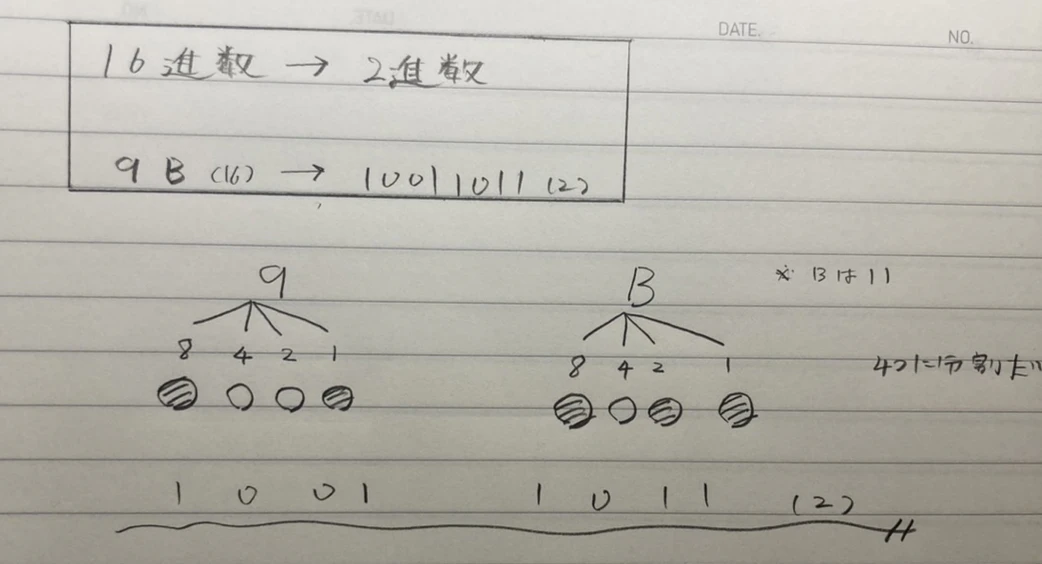 DATE. NO.
16進数 → 2進数
9B (16) → 10011011 (2)
9 B ※ Bは11
8 4 2 1 8 4 2 1 4つに分割
1 0 0 1 1 0 1 1 (2)